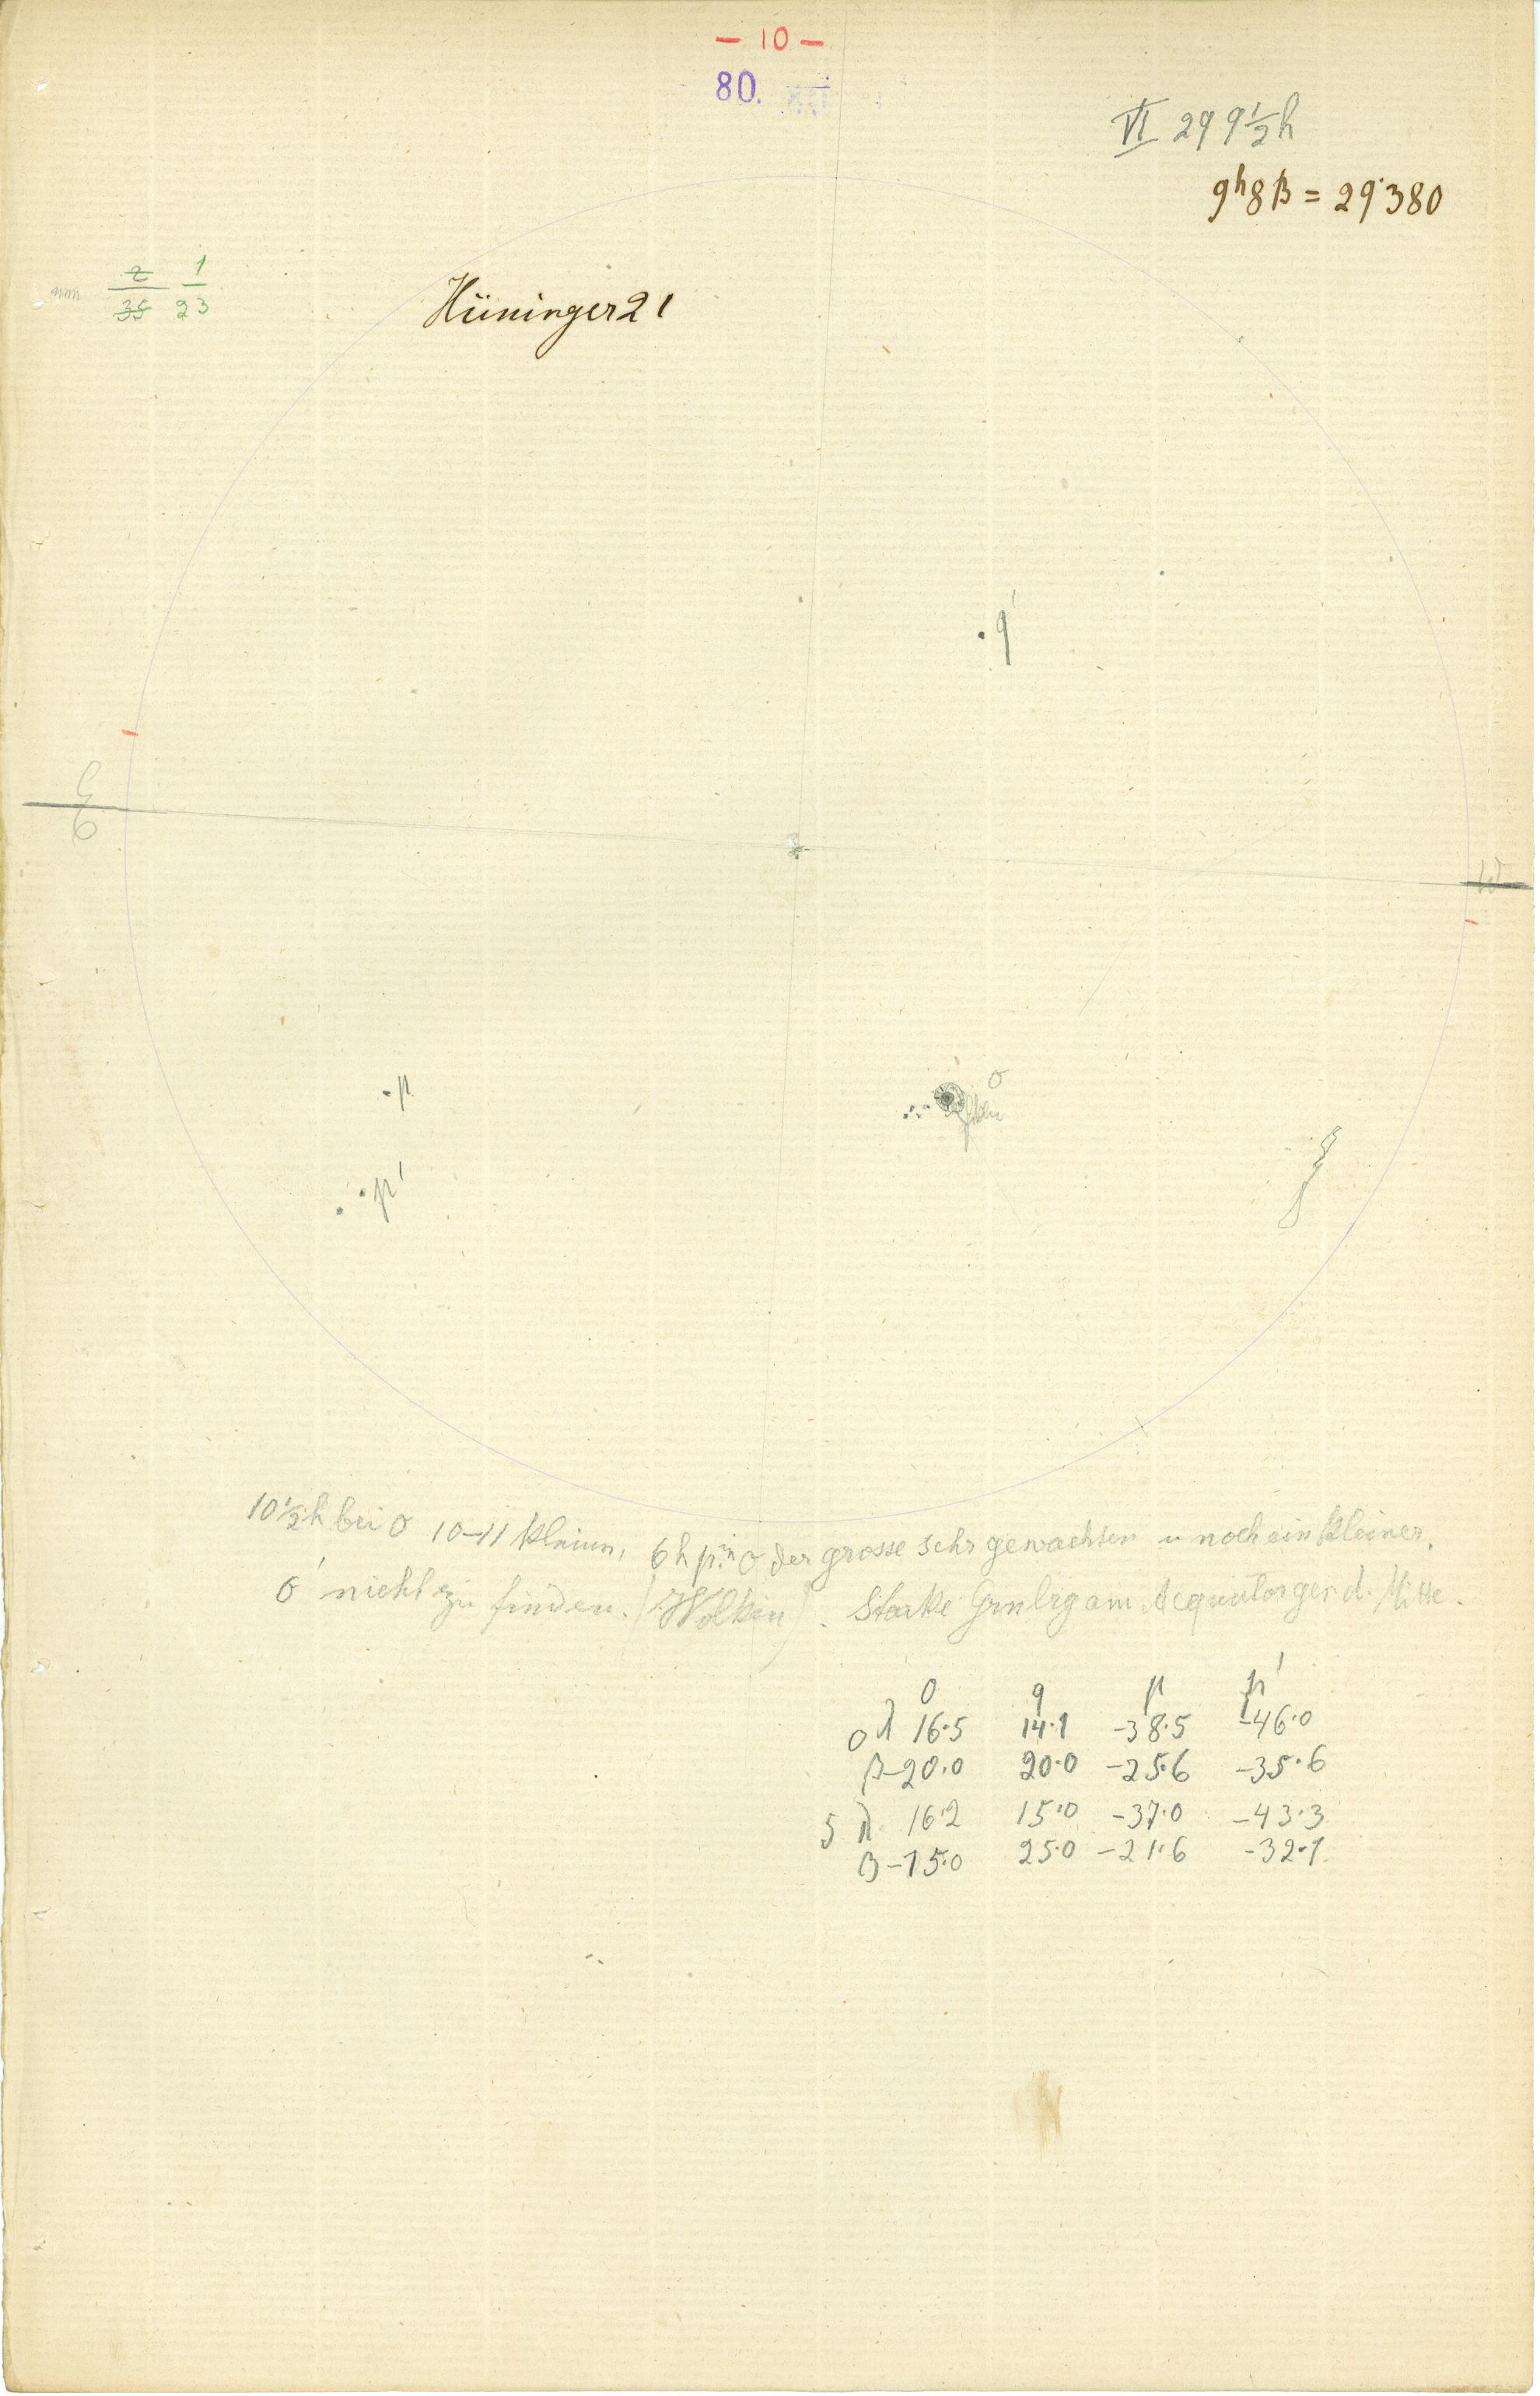 - 10 -
80.
VI 29 9½h
9h8β = 29·380
2 1
35 23
Hüninger 21
q'
W
σ
p
p'
10½h bei σ 10-11 kleine, 6h p.m σ der grosse sehr gewachsen u noch ein kleiner.
σ' nicht zu finden. (Wolken). Starke am Aequator geg. d. Mitte.
σ q p p'
0 λ 16·5 14·1 -38·5 -46·0
β -20·0 20·0 -25·6 -35·6
5 λ 16·2 15·0 -37·0 -43·3
β -15·0 25·0 -21·6 -32·1